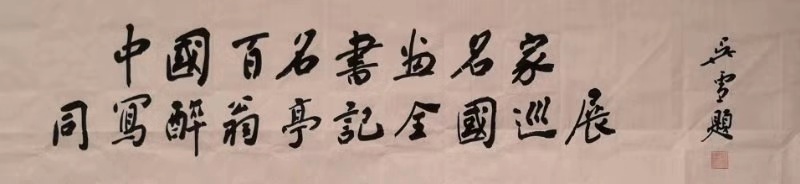 中國百名書畫名家
同寫醉翁亭記全國巡展
吳雪題